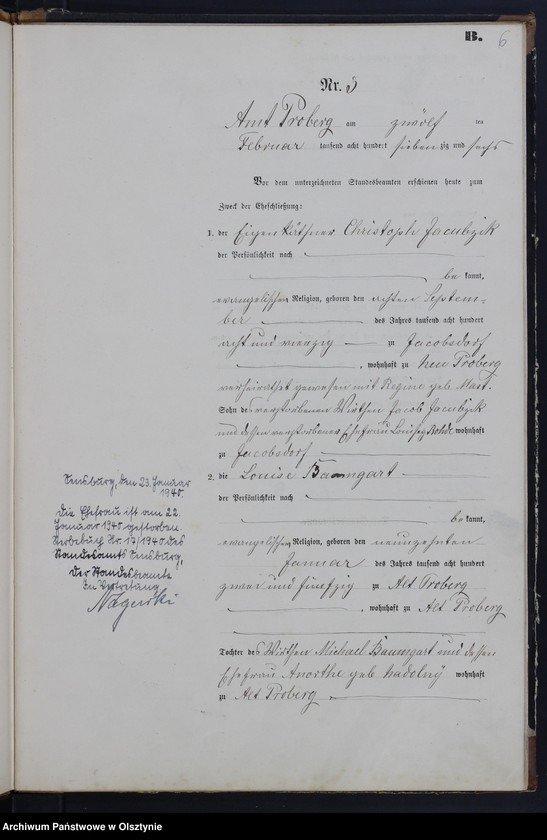 B. 6
Nr. 3
Amt Proberg am zwölf ten
Februar tausend acht hundert sieben zig und sechs
Vor dem unterzeichneten Standesbeamten erschienen heute zum
Zweck der Eheschließung:
1. der Eigenkäthner Christoph Jacubzik
der Persönlichkeit nach
be kannt,
evangelischen Religion, geboren den achten Septem-
ber des Jahres tausend acht hundert
acht und vierzig zu Jacobsdorf
, wohnhaft zu Neu Proberg
verheirathet gewesen mit Regine geb.
Sohn des verstorbenen Wirthen Jacob Jacubzik
und dessen verstorbenen Ehefrau Louise wohnhaft
zu Jacobsdorf
2. die Louise Baumgart
der Persönlichkeit nach
be kannt,
evangelischen Religion, geboren den neunzehnten
Januar des Jahres tausend acht hundert
zwei und fünfzig zu Alt Proberg
, wohnhaft zu Alt Proberg
Tochter des Wirthen Michael Baumgart und dessen
Ehefrau Anorthe geb. Nadolny wohnhaft
zu Alt Proberg
Sensburg, den 23. Januar
1940.
Die Ehefrau ist am 22.
Januar 1940 gestorben
Sterbebuch Nr. 17/1940 des
Standesamts Sensburg,
Der Standesbeamte
In Vertretung
Archiwum Państwowe w Olsztynie